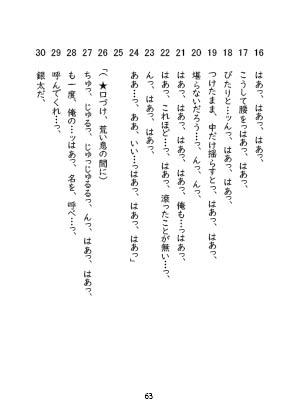 16 はあっ、はあっ、はあっ、
17 こうして腰をっはあっ、はあっ、
18 ぴたりと…ッんっ、はあっ、はあっ、
19 つけたまま、中だけ揺らすとっ、はあっ、
20 堪らないだろう…っ、んっ、んっ、
21 はあっ、はあっ、はあっ、俺も…っはあっ、
22 はあっ、これほど…っ、はあっ、滾ったことが無い…っ、
23 んっ、はあっ、はあっ、
24 ああ…っ、ああ、いい…っはあっ、はあっ、はあっ」
25
26 (★口づけ、荒い息の間に)
27 「ちゅっ、じゅるっ、じゅっじゅるるっ、んっ、はあっ、はあっ、
28 も一度、俺の…ッはあっ、名を、呼べ…っ、
29 呼んでくれ…っ、
30 銀太だ、
63